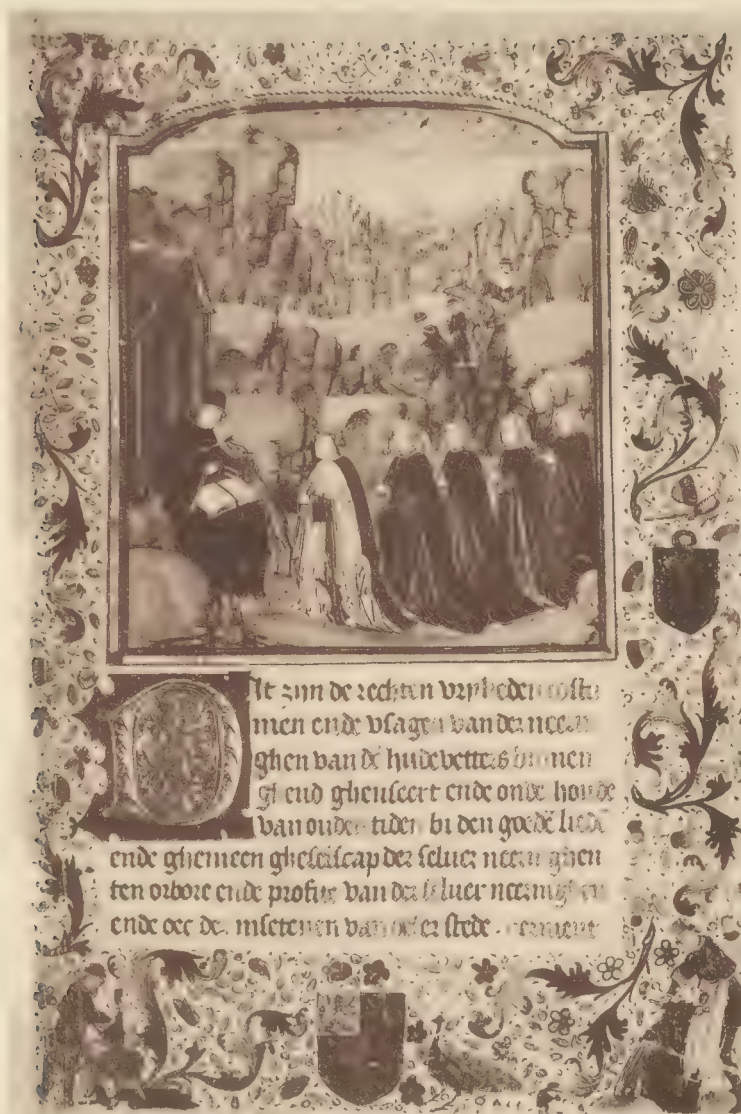 Dit zijn de rechten vryheden costu
men ende vsagen van der neerin
ghen van de hudevetters binnen
ghend gheuseert ende onderhoude
van ouden tiden bi den goede liede
ende ghemeen gheselscap der seluer neeringhen
ten orbore ende profite van der seluer neeringhen
ende oec der insetenen van stede